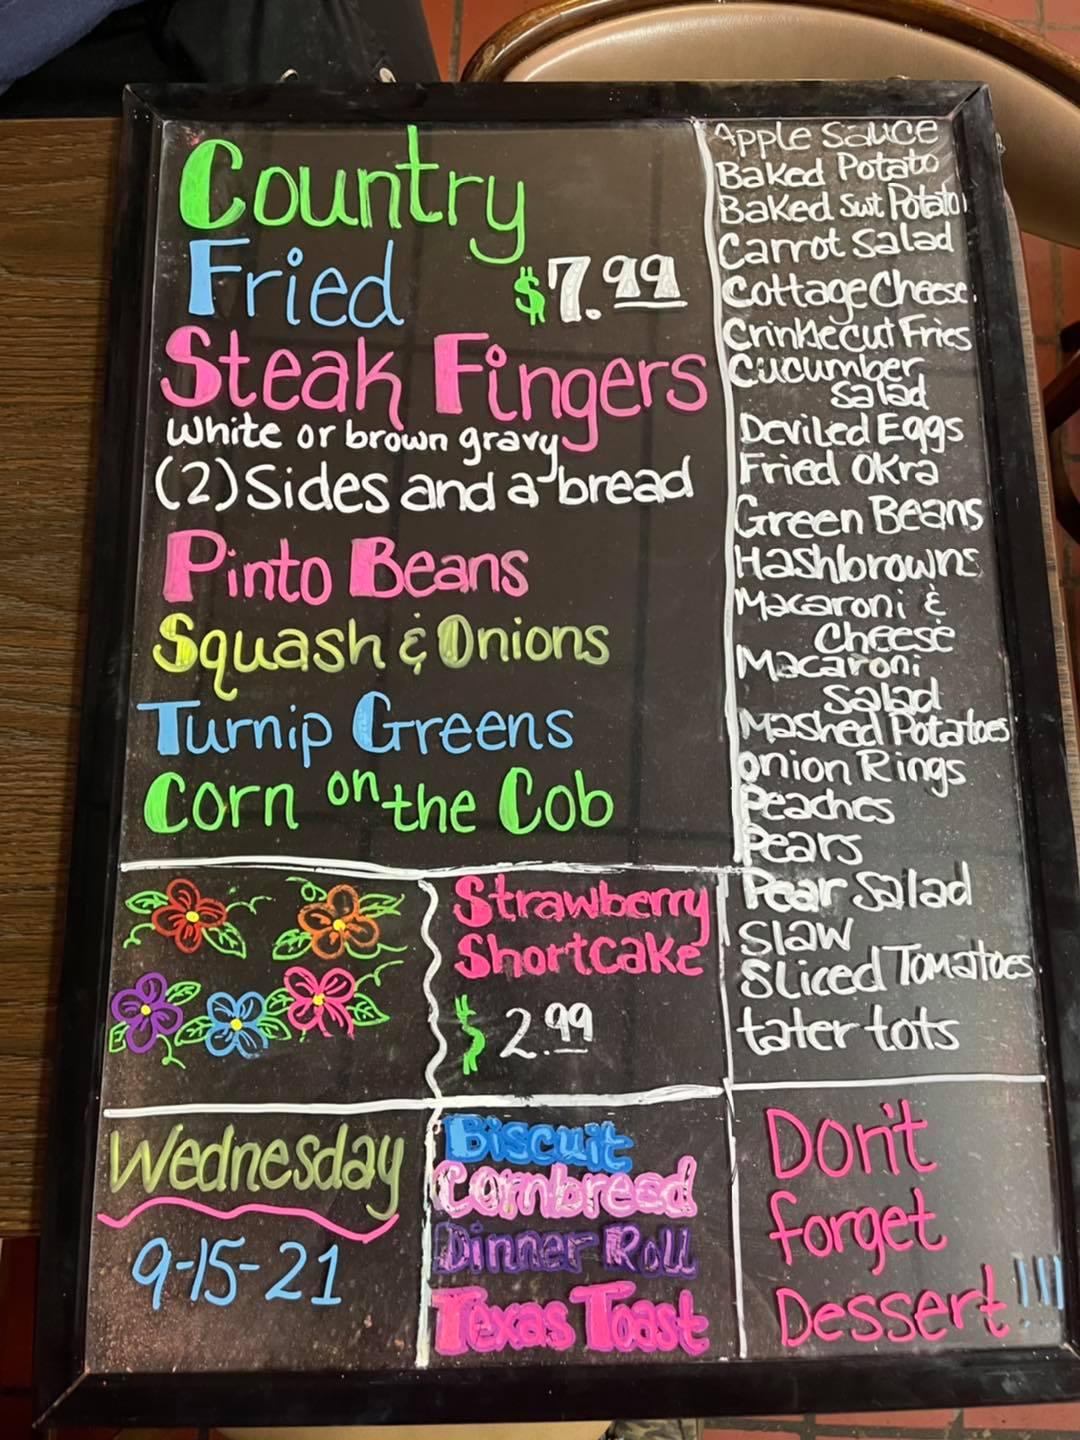 Country
Fried $7.99
Steak Fingers
white or brown gravy
(2) Sides and a bread
Pinto Beans
Squash & Onions
Turnip Greens
Corn on the Cob
Apple Sauce
Baked Potato
Baked Swt Potato
Carrot Salad
Cottage Cheese
Crinklecut Fries
Cucumber
Salad
Deviled Eggs
Fried Okra
Green Beans
Hashbrowns
Macaroni &
Cheese
Macaroni
Salad
Mashed Potatoes
Onion Rings
Peaches
Pears
Pear Salad
Slaw
Sliced Tomatoes
tater tots
Strawberry
Shortcake
$2.99
Wednesday
9-15-21
Biscuit
Cornbread
Dinner Roll
Texas Toast
Don't
forget
Dessert!!!